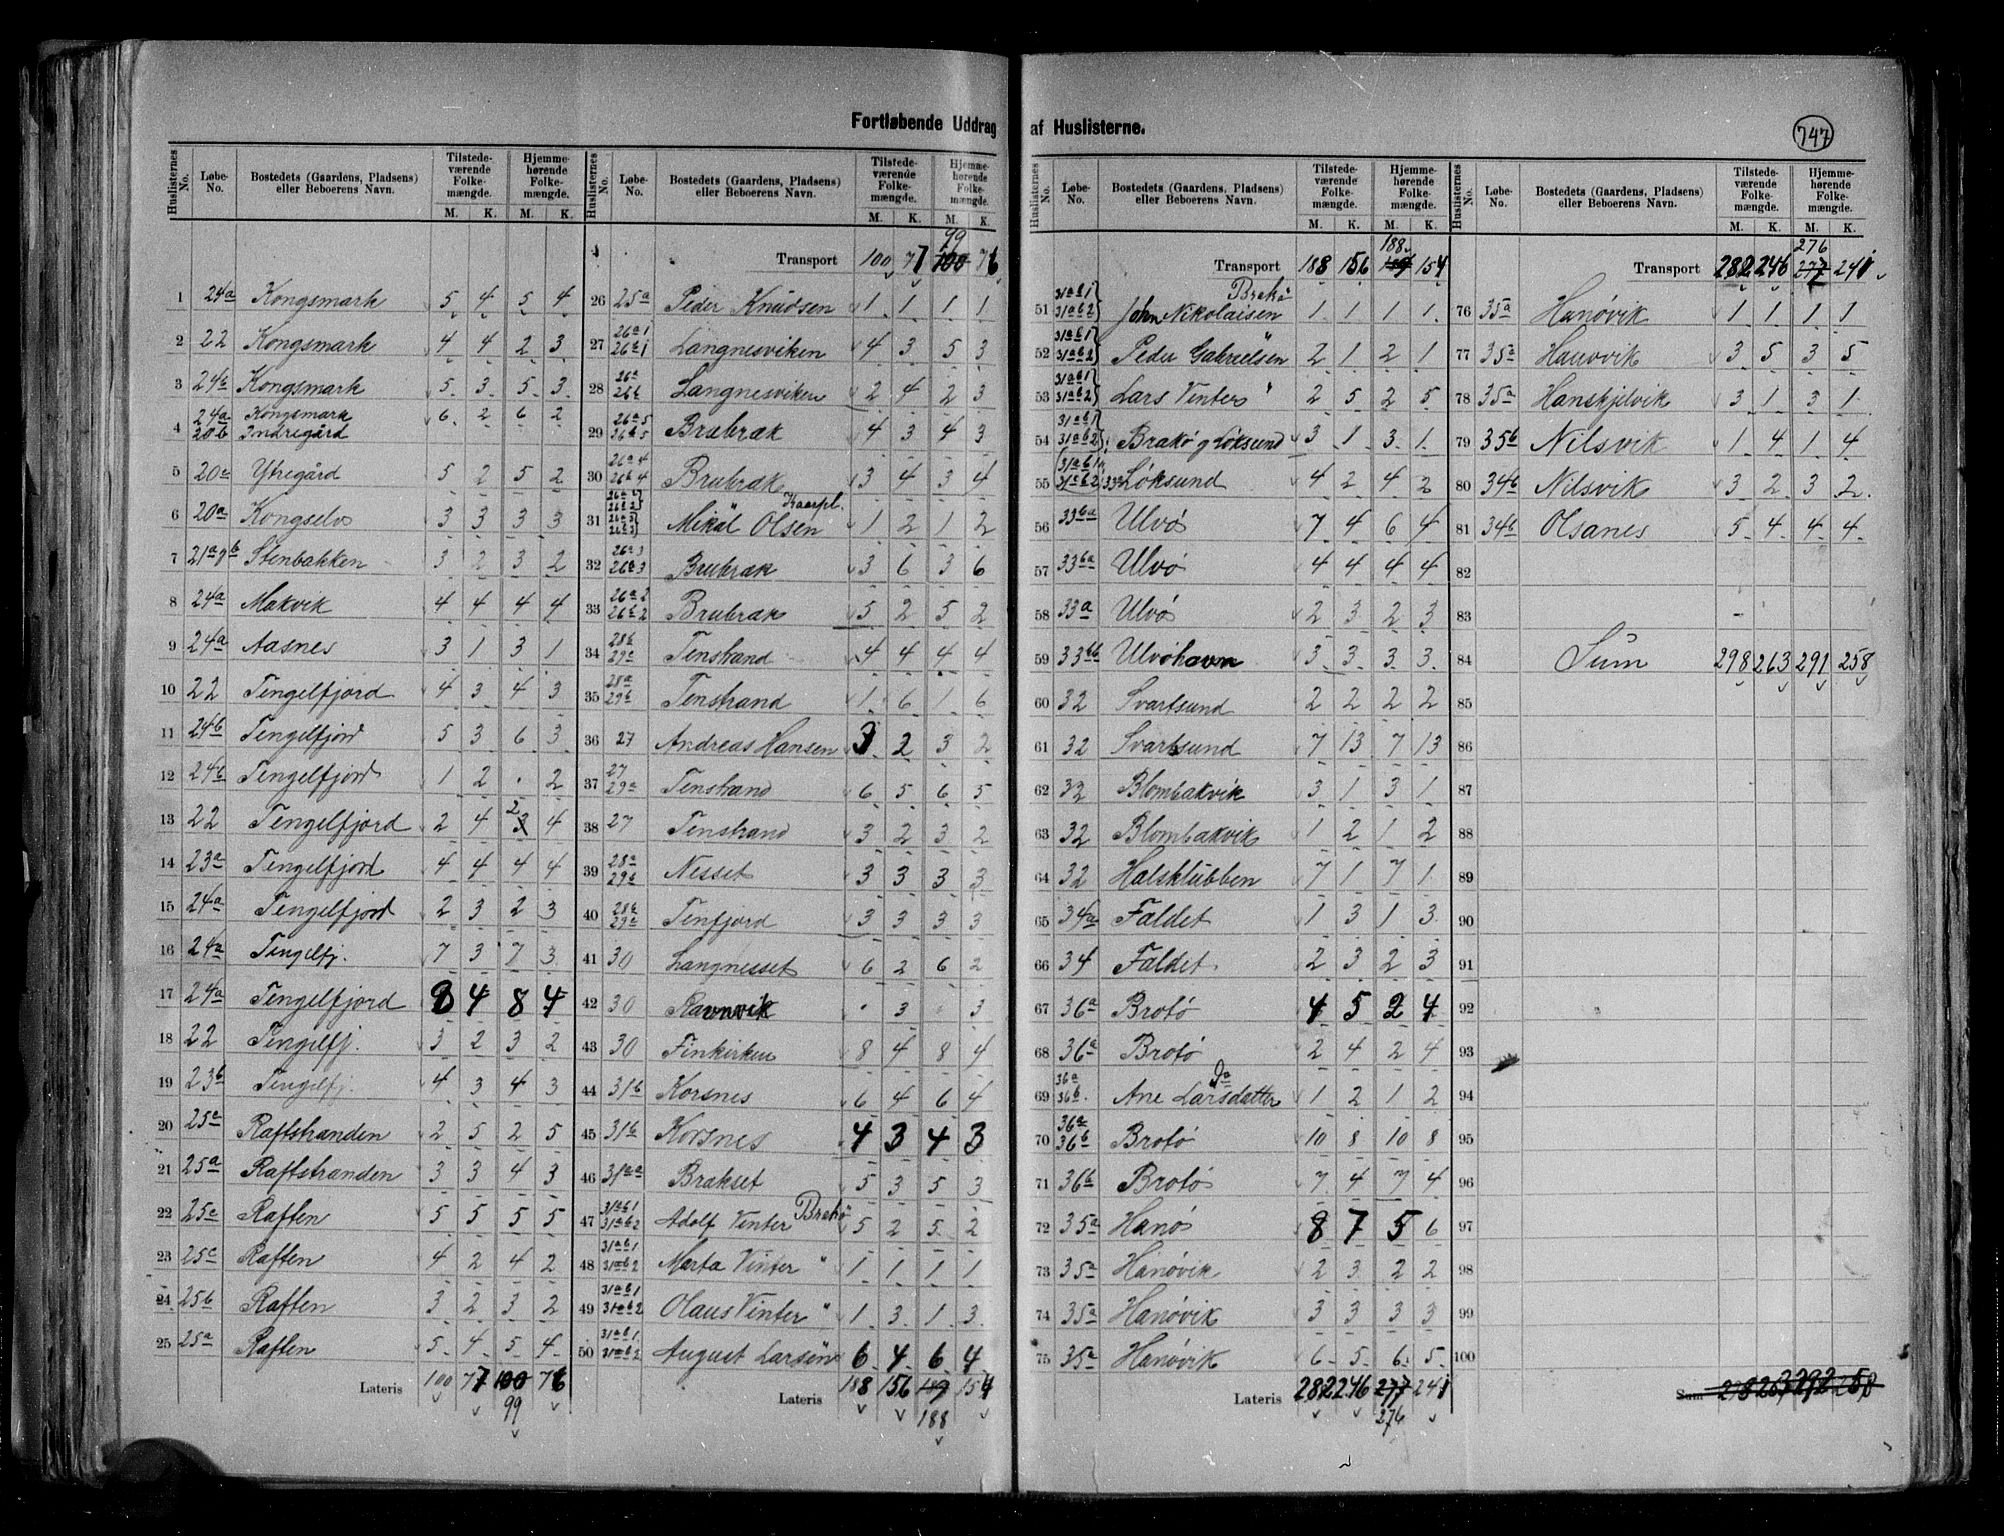 Fortløbende Uddrag af Huslisterne.
747
Huslisternes No. Løbe-No. Bostedets (Gaardens, Pladsens) eller Beboerens Navn. Tilstedeværende Folkemængde. M. K. Hjemmehørende Folkemængde. M. K.
1 24a Kongsmark 5 4 5 4
2 22 Kongsmark 4 4 2 3
3 24b Kongsmark 5 3 5 3
4 24a 20b Kongsmark Indregård 6 2 6 2
5 20c Ytregård 5 2 5 2
6 20a Kongselv 3 3 3 3
7 21a Stenbakken 3 2 3 2
8 24a Makvik 4 4 4 4
9 24a Aasnes 3 1 3 1
10 22 Tengelfjord 4 3 4 3
11 24b Tengelfjord 5 3 6 3
12 24b Tengelfjord 1 2 . 2
13 22 Tengelfjord 2 4 2 4
14 23a Tengelfjord 4 4 4 4
15 24a Tengelfjord 2 3 2 3
16 24a Tengelfj. 7 3 7 3
17 24a Tengelfjord 8 4 8 4
18 22 Tengelfj. 3 2 3 2
19 23b Tengelfj. 4 3 4 3
20 25a Raftstranden 2 5 2 5
21 25a Raftstranden 3 3 4 3
22 25a Raften 5 5 5 5
23 25c Raften 4 2 4 2
24 25b Raften 3 2 3 2
25 25a Raften 5 4 5 4
Lateris 100 77 100 76
99
Huslisternes No. Løbe-No. Bostedets (Gaardens, Pladsens) eller Beboerens Navn. Tilstedeværende Folkemængde. M. K. Hjemmehørende Folkemængde. M. K.
99
Transport 100 77 100 76
26 25a Peder Knudsen 1 1 1 1
27 26a1 26b1 Langnesviken 4 3 5 3
28 26a 26b Langnesviken 2 4 2 3
29 26a5 26b5 Brabrak 4 3 4 3
30 26a4 26b4 Brubrak 3 4 3 4
31 26a2 26b2 26a3 26b3 Mikal Olsen 1 2 1 2
32 26a3 26b3 Brubrak 3 6 3 6
33 26a2 26b2 Brubrak 5 2 5 2
34 28b 29a Tenstrand 4 4 4 4
35 28a 29b Tenstrand 1 6 1 6
36 27 Andreas Hansen 3 2 3 2
37 27 29a Tenstrand 6 5 6 5
38 27 Tenstrand 3 2 3 2
39 28a 29b Nesset 3 3 3 3
40 28b 29a Tenfjord 3 3 3 3
41 30 Langnesset 6 2 6 2
42 30 Ravnvik . 3 . 3
43 30 Finkirken 8 4 8 4
44 31b Korsnes 6 4 6 4
45 31b Korsnes 4 3 4 3
46 31aa Brakset 5 3 5 3
47 31ab1 31ab2 Adolf Vinter Brakø 5 2 5 2
48 31ab1 31ab2 Marta Vinter " 1 1 1 1
49 31ab1 31ab2 Olaus Vinter " 1 3 1 3
50 31ab1 31ab2 August Larsen 6 4 6 4
Lateris 188 156 189 154
188
Huslisternes No. Løbe-No. Bostedets (Gaardens, Pladsens) eller Beboerens Navn. Tilstedeværende Folkemængde. M. K. Hjemmehørende Folkemængde. M. K.
188
Transport 188 156 189 154
51 31ab1 31ab2 John Nikolaisen Brakø 1 1 1 1
52 31ab1 31ab2 Peder Gabrielsen " 2 1 2 1
53 31ab1 31ab2 Lars Vinter " 2 5 2 5
54 31ab1 31ab2 Brakø og Løksund 3 1 3 1
55 31ab1 31ab2 33a Løksund 4 2 4 2
56 33ba Ulvø 7 4 6 4
57 33ba Ulvø 4 4 4 4
58 33a Ulvø 2 3 2 3
59 33bb Ulvøhavn 3 3 3 3
60 32 Svartsund 2 2 2 2
61 32 Svartsund 7 13 7 13
62 32 Blombakvik 3 1 3 1
63 32 Blombakvik 1 2 1 2
64 32 Halsklubben 7 1 7 1
65 34a Faldet 1 3 1 3
66 34 Faldet 2 3 2 3
67 36a Brotø 4 5 2 4
68 36a Brotø 2 4 2 4
69 36a 36b Ane Larsdatter Da 1 2 1 2
70 36a 36b Brotø 10 8 10 8
71 36b Brotø 7 4 7 4
72 35a Hanø 8 7 5 6
73 35a Hanøvik 2 3 2 2
74 35a Hanøvik 3 3 3 3
75 35a Hanøvik 6 5 6 5
Lateris 282 246 277 241
276
Huslisternes No. Løbe-No. Bostedets (Gaardens, Pladsens) eller Beboerens Navn. Tilstedeværende Folkemængde. M. K. Hjemmehørende Folkemængde. M. K.
276
Transport 282 246 277 241
76 35a Hanøvik 1 1 1 1
77 35a Hanøvik 3 5 3 5
78 35a Hanskjelvik 3 1 3 1
79 35b Nilsvik 1 4 1 4
80 34b Nilsvik 3 2 3 2
81 34b Olsanes 5 4 4 4
82
83
84 Sum 298 263 291 258
85
86
87
88
89
90
91
92
93
94
95
96
97
98
99
100
Sum 298 263 292 258